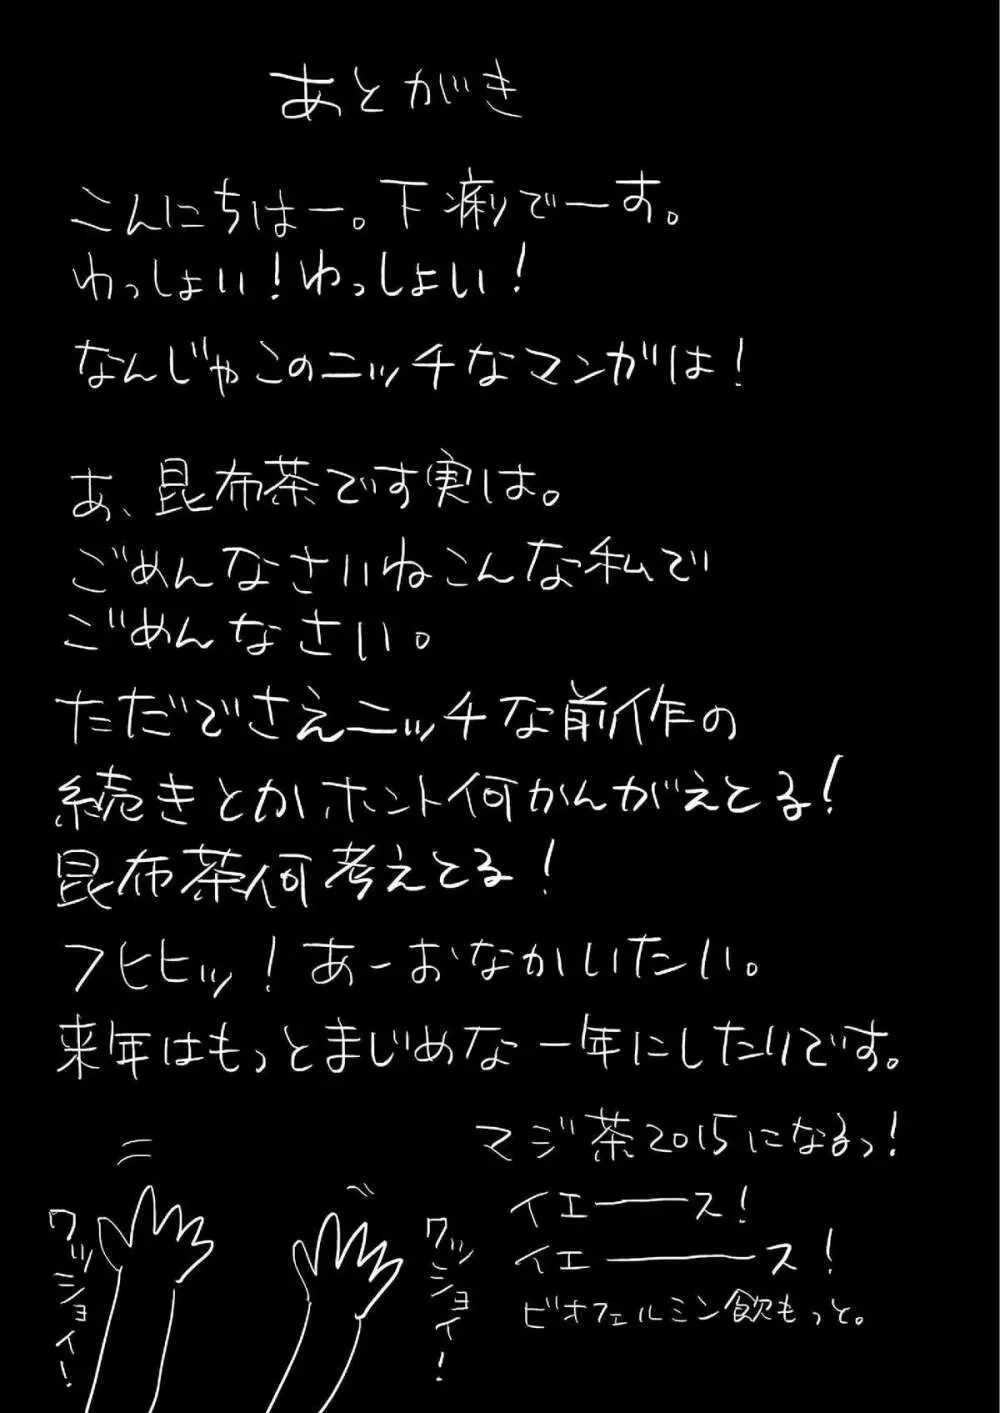 あとがき
こんにちはー。下痢でーす。
わっしょい!わっしょい!
なんじゃこのニッチなマンガは!
あ、昆布茶です実は。
ごめんなさいねこんな私で
ごめんなさい。
ただでさえニッチな前作の
続きとかホント何かんがえてる!
昆布茶何考えてる!
フヒヒッ!あーおなかいたい。
来年はもっとまじめな一年にしたいです。
マジ茶2015になるっ!
イエーース!
イエーーース!
ビオフェルミン飲もっと。
ワッショイ!
ワッショイ!